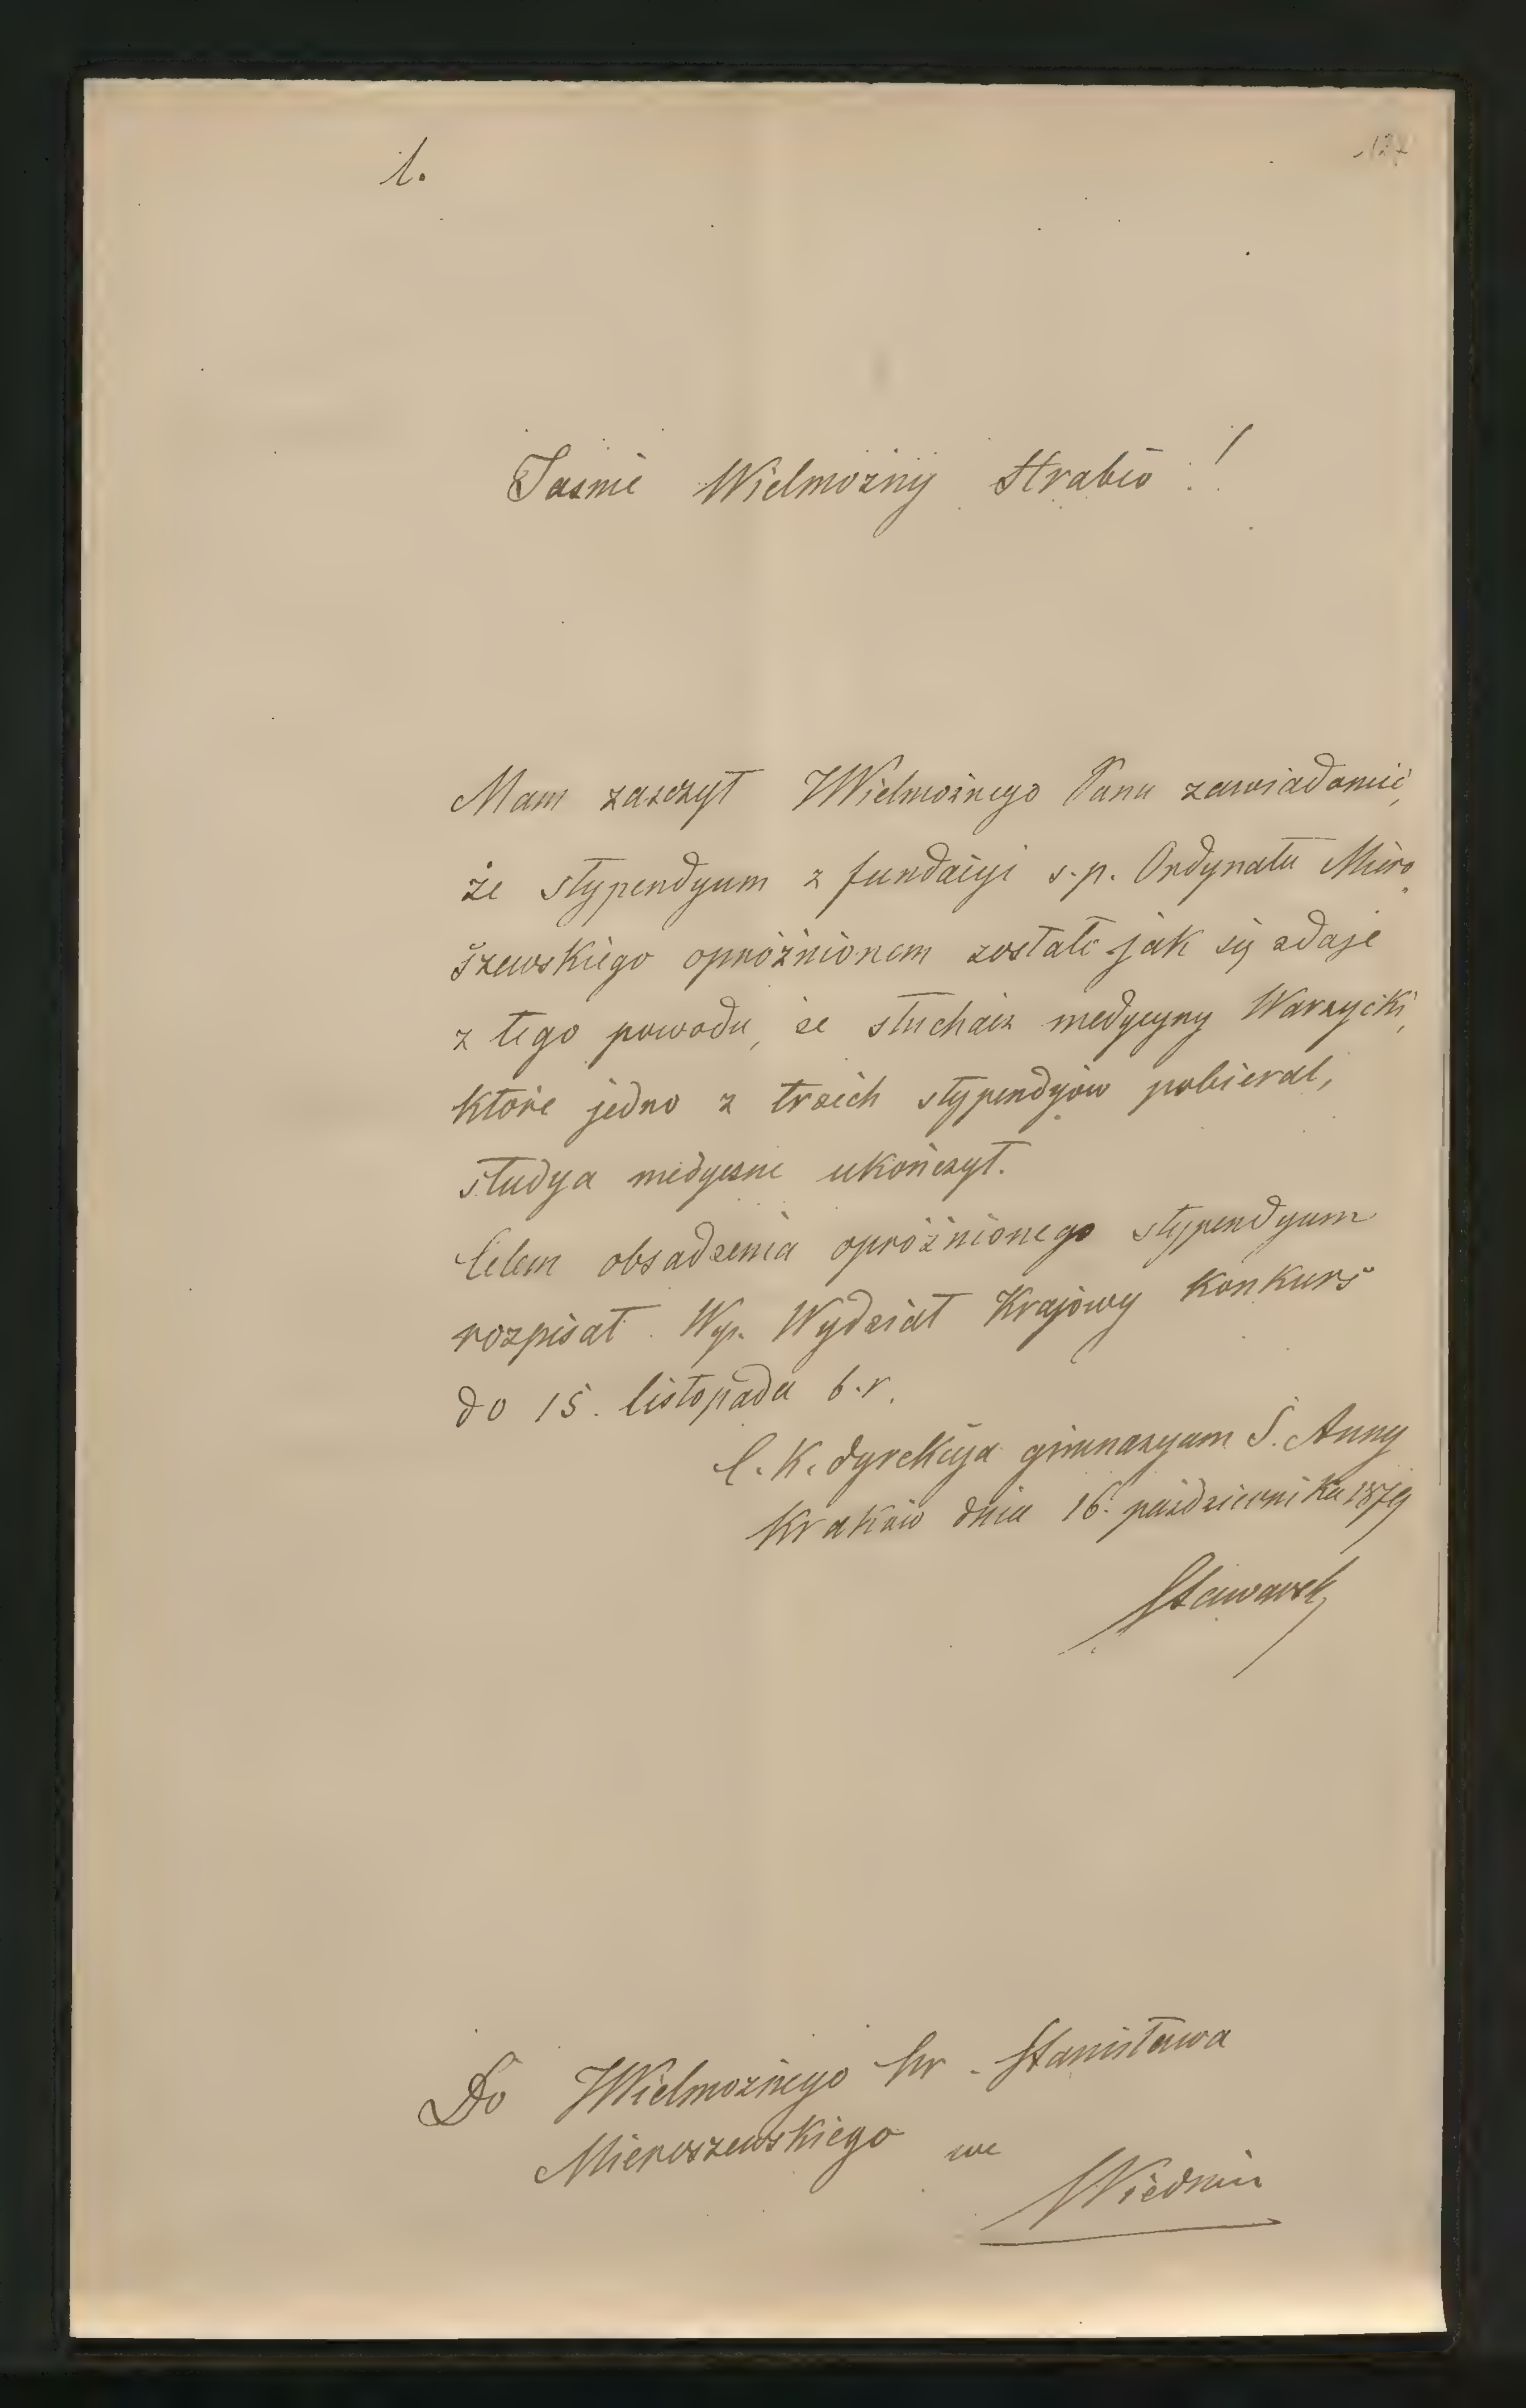 1.
Jaśnie Wielmożny Hrabio!
Mam zaszczyt Wielmożnego Pana zawiadomić,
że stypendyum z fundacyi ś.p. Ordynata Miero
szewskiego opróżnionem zostało jak się zdaje
z tego powodu, że słuchacz medycyny Warzycki,
które jedno z trzech stypendyów pobierał,
studya medyczne ukończył.
Celem obsadzenia opróżnionego stypendyum
rozpisał Wys. Wydział Krajowy konkurs
do 15. listopada b.r.
C. K. dyrekcya gimnazyum Ś. Anny
Kraków dnia 16. października 1879
Stawarski
Do Wielmożnego hr. Stanisława
Mieroszewskiego we
Wiedniu